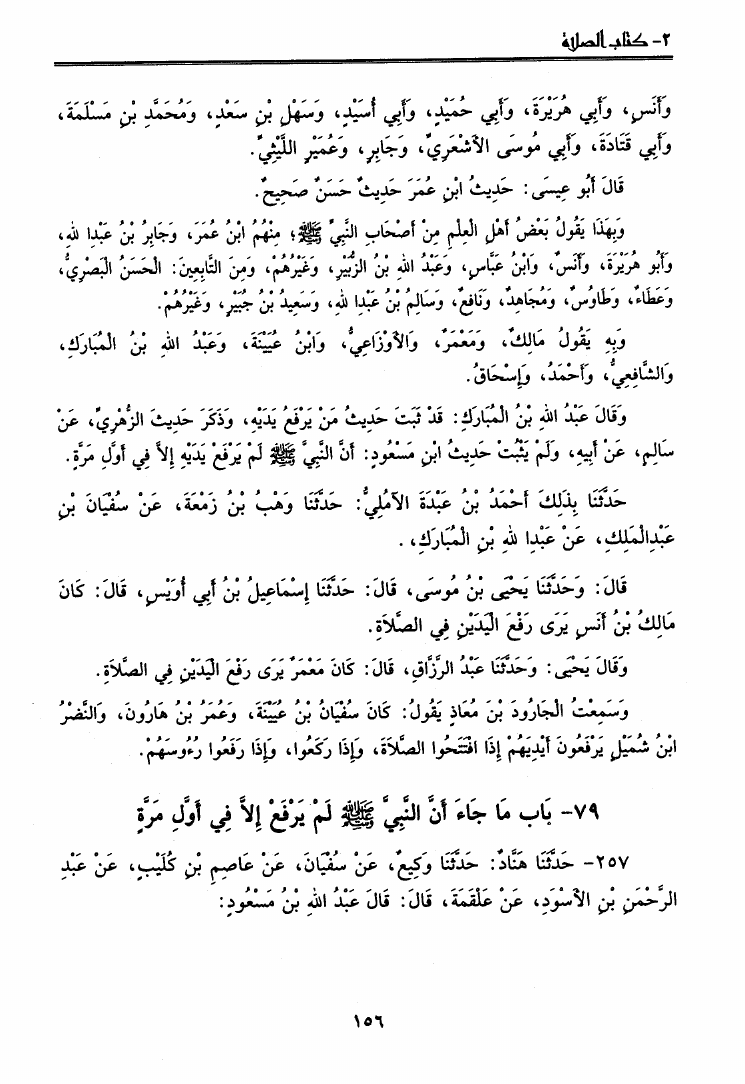 ٢- كتاب الصلاة
وَأَنَسٍ، وَأَبِي هُرَيْرَةَ، وَأَبِي حُمَيْدٍ، وَأَبِي أُسَيْدٍ، وَسَهْلِ بْنِ سَعْدٍ، وَمُحَمَّدِ بْنِ مَسْلَمَةَ،
وَأَبِي قَتَادَةَ، وَأَبِي مُوسَى الْأَشْعَرِيِّ، وَجَابِرٍ، وَعُمَيْرٍ اللَّيْثِيِّ.
قَالَ أَبُو عِيسَى: حَدِيثُ ابْنِ عُمَرَ حَدِيثٌ حَسَنٌ صَحِيحٌ.
وَبِهَذَا يَقُولُ بَعْضُ أَهْلِ الْعِلْمِ مِنْ أَصْحَابِ النَّبِيِّ ﷺ؛ مِنْهُمُ ابْنُ عُمَرَ، وَجَابِرُ بْنُ عَبْدِا للهِ،
وَأَبُو هُرَيْرَةَ، وَأَنَسٌ، وَابْنُ عَبَّاسٍ، وَعَبْدُ اللهِ بْنُ الزُّبَيْرِ، وَغَيْرُهُمْ، وَمِنَ التَّابِعِينَ: الْحَسَنُ الْبَصْرِيُّ،
وَعَطَاءٌ، وَطَاوُسٌ، وَمُجَاهِدٌ، وَنَافِعٌ، وَسَالِمُ بْنُ عَبْدِا للهِ، وَسَعِيدُ بْنُ جُبَيْرٍ، وَغَيْرُهُمْ.
وَبِهِ يَقُولُ مَالِكٌ، وَمَعْمَرٌ، وَالْأَوْزَاعِيُّ، وَابْنُ عُيَيْنَةَ، وَعَبْدُ اللهِ بْنُ الْمُبَارَكِ،
وَالشَّافِعِيُّ، وَأَحْمَدُ، وَإِسْحَاقُ.
وَقَالَ عَبْدُ اللهِ بْنُ الْمُبَارَكِ: قَدْ ثَبَتَ حَدِيثُ مَنْ يَرْفَعُ يَدَيْهِ، وَذَكَرَ حَدِيثَ الزُّهْرِيِّ، عَنْ
سَالِمٍ، عَنْ أَبِيهِ، وَلَمْ يَثْبُتْ حَدِيثُ ابْنِ مَسْعُودٍ: أَنَّ النَّبِيَّ ﷺ لَمْ يَرْفَعْ يَدَيْهِ إِلاَّ فِي أَوَّلِ مَرَّةٍ.
حَدَّثَنَا بِذَلِكَ أَحْمَدُ بْنُ عَبْدَةَ الْآمُلِيُّ: حَدَّثَنَا وَهْبُ بْنُ زَمْعَةَ، عَنْ سُفْيَانَ بْنِ
عَبْدِالْمَلِكِ، عَنْ عَبْدِا للهِ بْنِ الْمُبَارَكِ، .
قَالَ: وَحَدَّثَنَا يَحْيَى بْنُ مُوسَى، قَالَ: حَدَّثَنَا إِسْمَاعِيلُ بْنُ أَبِي أُوَيْسٍ، قَالَ: كَانَ
مَالِكُ بْنُ أَنَسٍ يَرَى رَفْعَ الْيَدَيْنِ فِي الصَّلَاةِ.
وَقَالَ يَحْيَى: وَحَدَّثَنَا عَبْدُ الرَّزَّاقِ، قَالَ: كَانَ مَعْمَرٌ يَرَى رَفْعَ الْيَدَيْنِ فِي الصَّلَاةِ.
وَسَمِعْتُ الْجَارُودَ بْنَ مُعَاذٍ يَقُولُ: كَانَ سُفْيَانُ بْنُ عُيَيْنَةَ، وَعُمَرُ بْنُ هَارُونَ، وَالنَّضْرُ
ابْنُ شُمَيْلٍ يَرْفَعُونَ أَيْدِيَهُمْ إِذَا افْتَتَحُوا الصَّلَاةَ، وَإِذَا رَكَعُوا، وَإِذَا رَفَعُوا رُءُوسَهُمْ.
٧٩- بَاب مَا جَاءَ أَنَّ النَّبِيَّ ﷺ لَمْ يَرْفَعْ إِلاَّ فِي أَوَّلِ مَرَّةٍ
٢٥٧- حَدَّثَنَا هَنَّادٌ: حَدَّثَنَا وَكِيعٌ، عَنْ سُفْيَانَ، عَنْ عَاصِمِ بْنِ كُلَيْبٍ، عَنْ عَبْدِ
الرَّحْمَنِ بْنِ الْأَسْوَدِ، عَنْ عَلْقَمَةَ، قَالَ: قَالَ عَبْدُ اللهِ بْنُ مَسْعُودٍ:
١٥٦